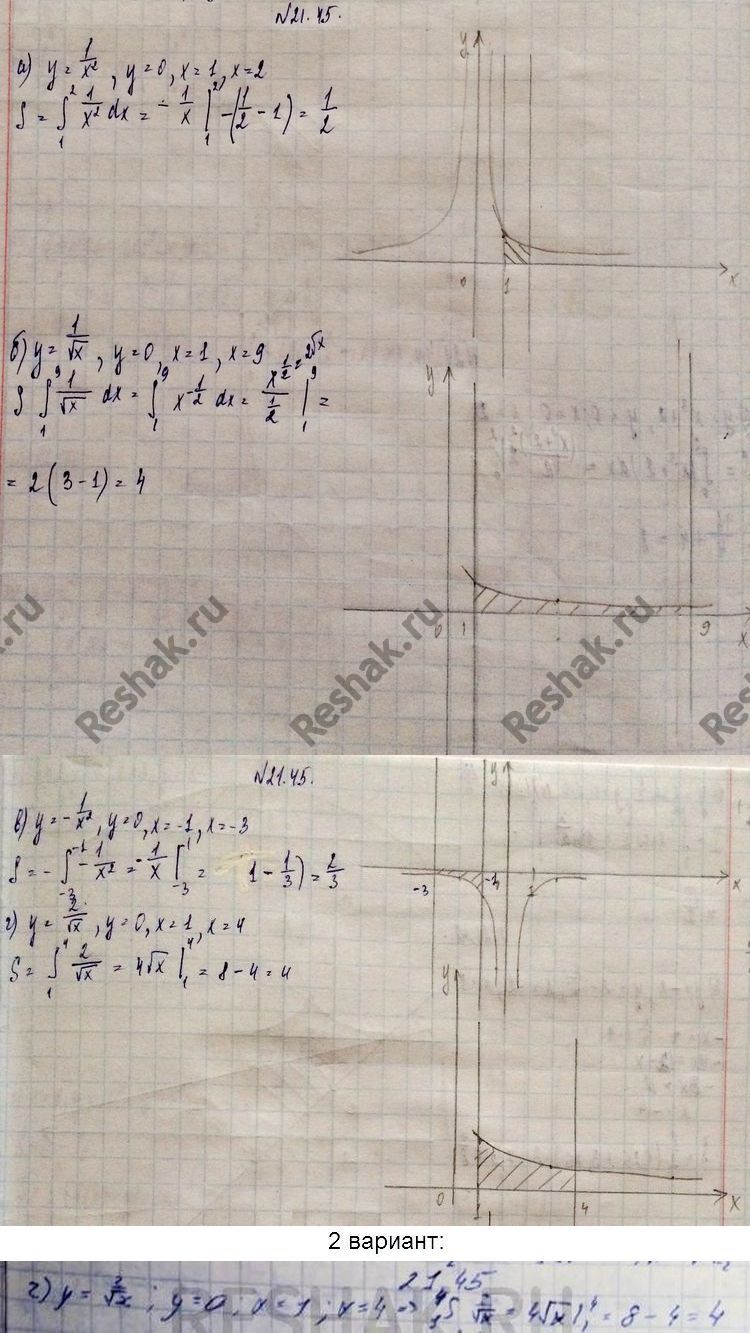 №21.45.
y
а) y = 1/x², y=0, x=1, x=2
S = ∫₁² 1/x² dx = - 1/x |₁² -(1/2 - 1) = 1/2
0 1 x
б) y = 1/√x, y=0, x=1, x=9
S ∫₁⁹ 1/√x dx = ∫₁⁹ x^(-1/2) dx = x^(1/2)/(1/2) |₁⁹ =
= 2√x
y
= 2(3-1) = 4
0 1 9 x
Reshak.ru
Reshak.ru
Reshak.ru
№21.45.
y
в) y = -1/x², y=0, x=-1, x=-3
S = -∫₋₃⁻¹ -1/x² = -1/x |₋₃⁻¹ = 1 - 1/3) = 2/3
-3 1 x
г) y = 2/√x, y=0, x=1, x=4
S = ∫₁⁴ 2/√x = 4√x |₁⁴ = 8-4 = 4
y
0 1 4 x
2 вариант:
21.45
г) y = 2/√x ; y=0 ; x=1 ; x=4 => ₁⁴∫ 2/√x = 4√x |₁⁴ = 8-4 = 4
RESHAK.RU